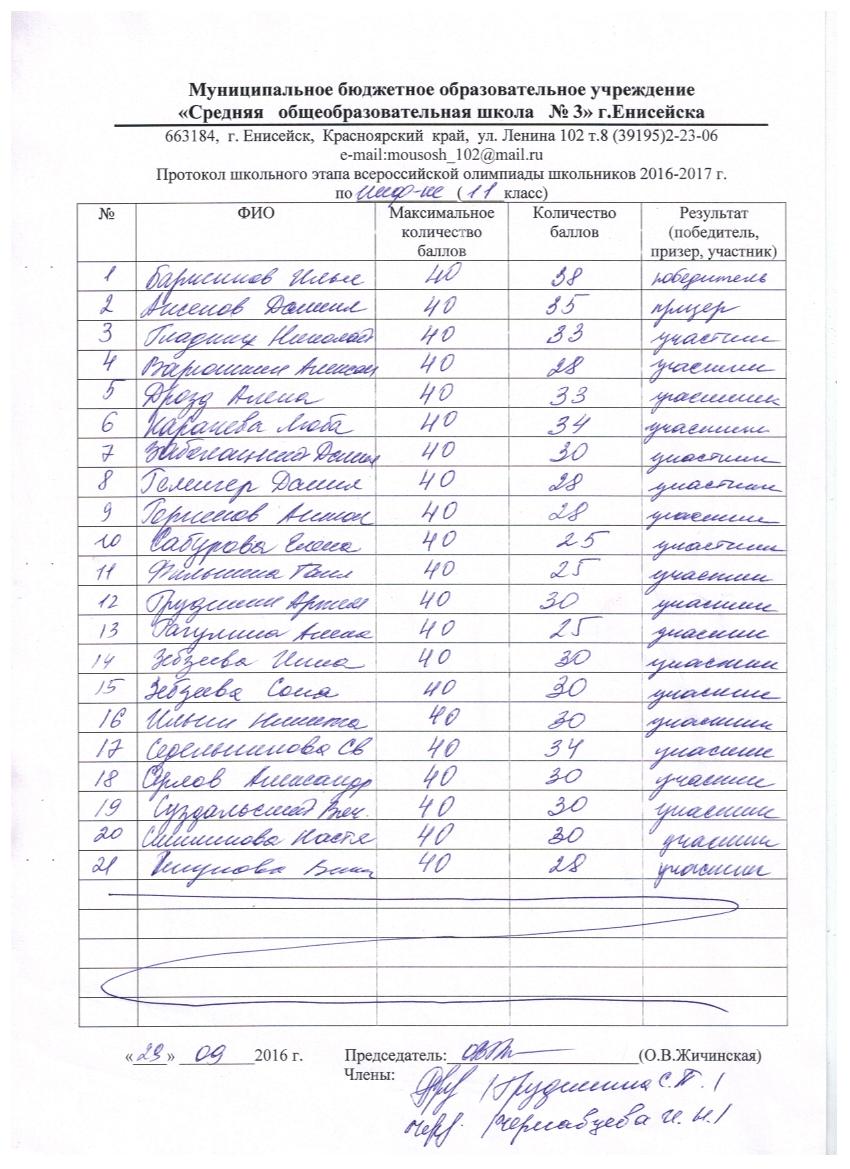 Муниципальное бюджетное образовательное учреждение
«Средняя общеобразовательная школа № 3» г.Енисейска
663184, г. Енисейск, Красноярский край, ул. Ленина 102 т.8 (39195)2-23-06
e-mail:mousosh_102@mail.ru
Протокол школьного этапа всероссийской олимпиады школьников 2016-2017 г.
по инф-ке (11 класс)
№ ФИО Максимальное количество баллов Количество баллов Результат (победитель, призер, участник)
1 Илья 40 38 победитель
2 Аксенов Даниил 40 35 призер
3 Гладких Николай 40 33 участник
4 40 28 участник
5 Дрозд Алена 40 33 участник
6 Люба 40 34 участник
7 40 30 участник
8 Даниил 40 28 участник
9 Антон 40 28 участник
10 Сабурова Елена 40 25 участник
11 Фильшина 40 25 участник
12 Грудинин Артем 40 30 участник
13 Рагулина Алена 40 25 участник
14 Зебзеева Инна 40 30 участник
15 Зебзеева Соня 40 30 участник
16 Ильин Никита 40 30 участник
17 Седельникова Св 40 34 участник
18 Александр 40 30 участник
19 40 30 участник
20 Настя 40 30 участник
21 40 28 участник
«29» 09 2016 г. Председатель: (О.В.Жичинская)
Члены: /Грудинина С.П./
/Чернавцева И.Н./